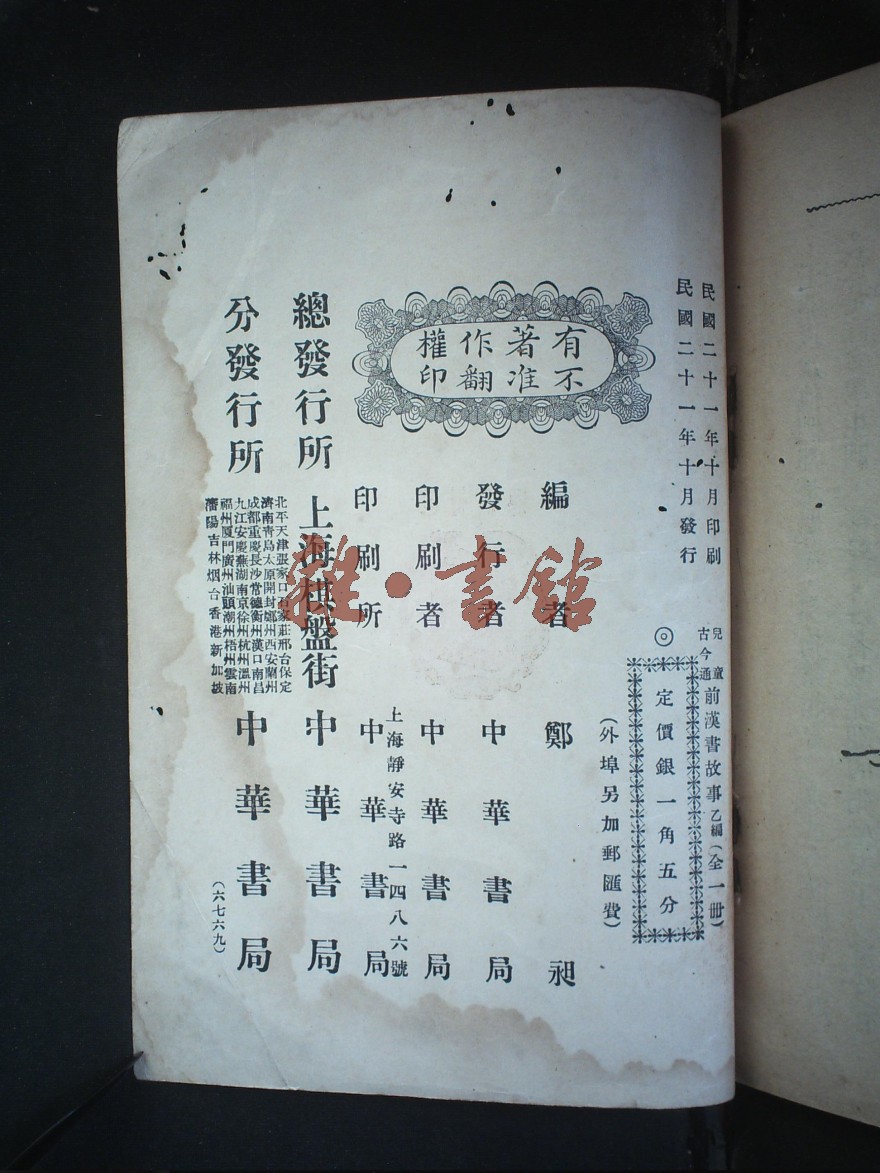 民國二十一年十月印刷
民國二十一年十月發行
兒童
古今通
前漢書故事 乙編(全一冊)
◎
定價銀一角五分
(外埠另加郵匯費)
有著作權
不准翻印
編者 鄭昶
發行者 中華書局
印刷者 中華書局
上海靜安寺路一四八六號
印刷所 中華書局
總發行所 上海棋盤街 中華書局
分發行所
北平天津張家口石家莊邢台保定
濟南青島太原開封鄭州西安蘭州
成都重慶長沙常德衡州漢口南昌
九江安慶蕪湖南京徐州杭州溫州
福州廈門廣州汕頭潮州梧州雲南
瀋陽吉林烟台香港新加坡
中華書局
(六七六九)
雜·書館